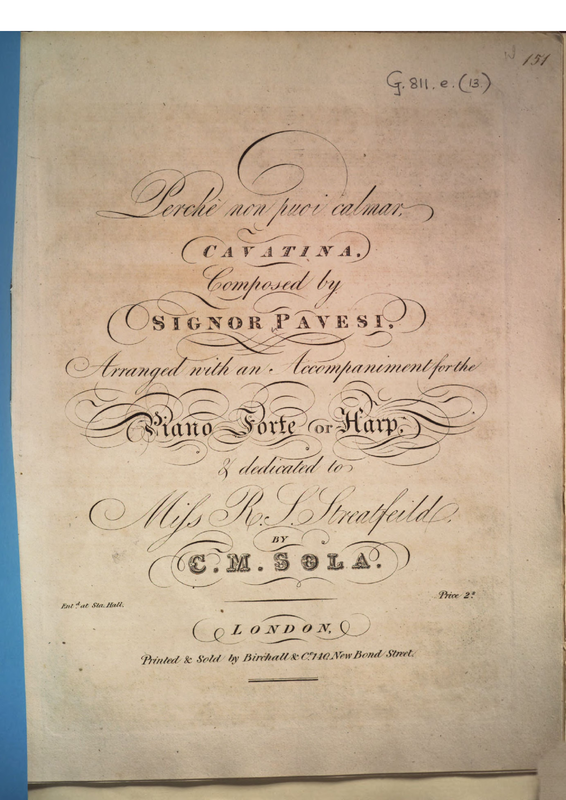 151
G. 811. e. (13.)
Perchè non puoi calmar,
CAVATINA,
Composed by
SIGNOR PAVESI,
Arranged with an Accompaniment for the
Piano Forte or Harp,
& dedicated to
Miſs R. S. Streatfeild.
BY
C. M. SOLA.
Ent.d at Sta. Hall.
Price 2s
LONDON,
Printed & Sold by Birchall & Co. 140, New Bond Street.